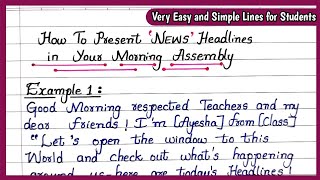 Very Easy and Simple Lines for Students
How To Present 'NEWS' Headlines
in Your Morning Assembly
Example 1:
Good Morning respected Teachers and my
dear friends! I'm [Ayesha] from [Class]
"Let's open the window to this
World and check out what's happening
around us-here are today's Headlines!